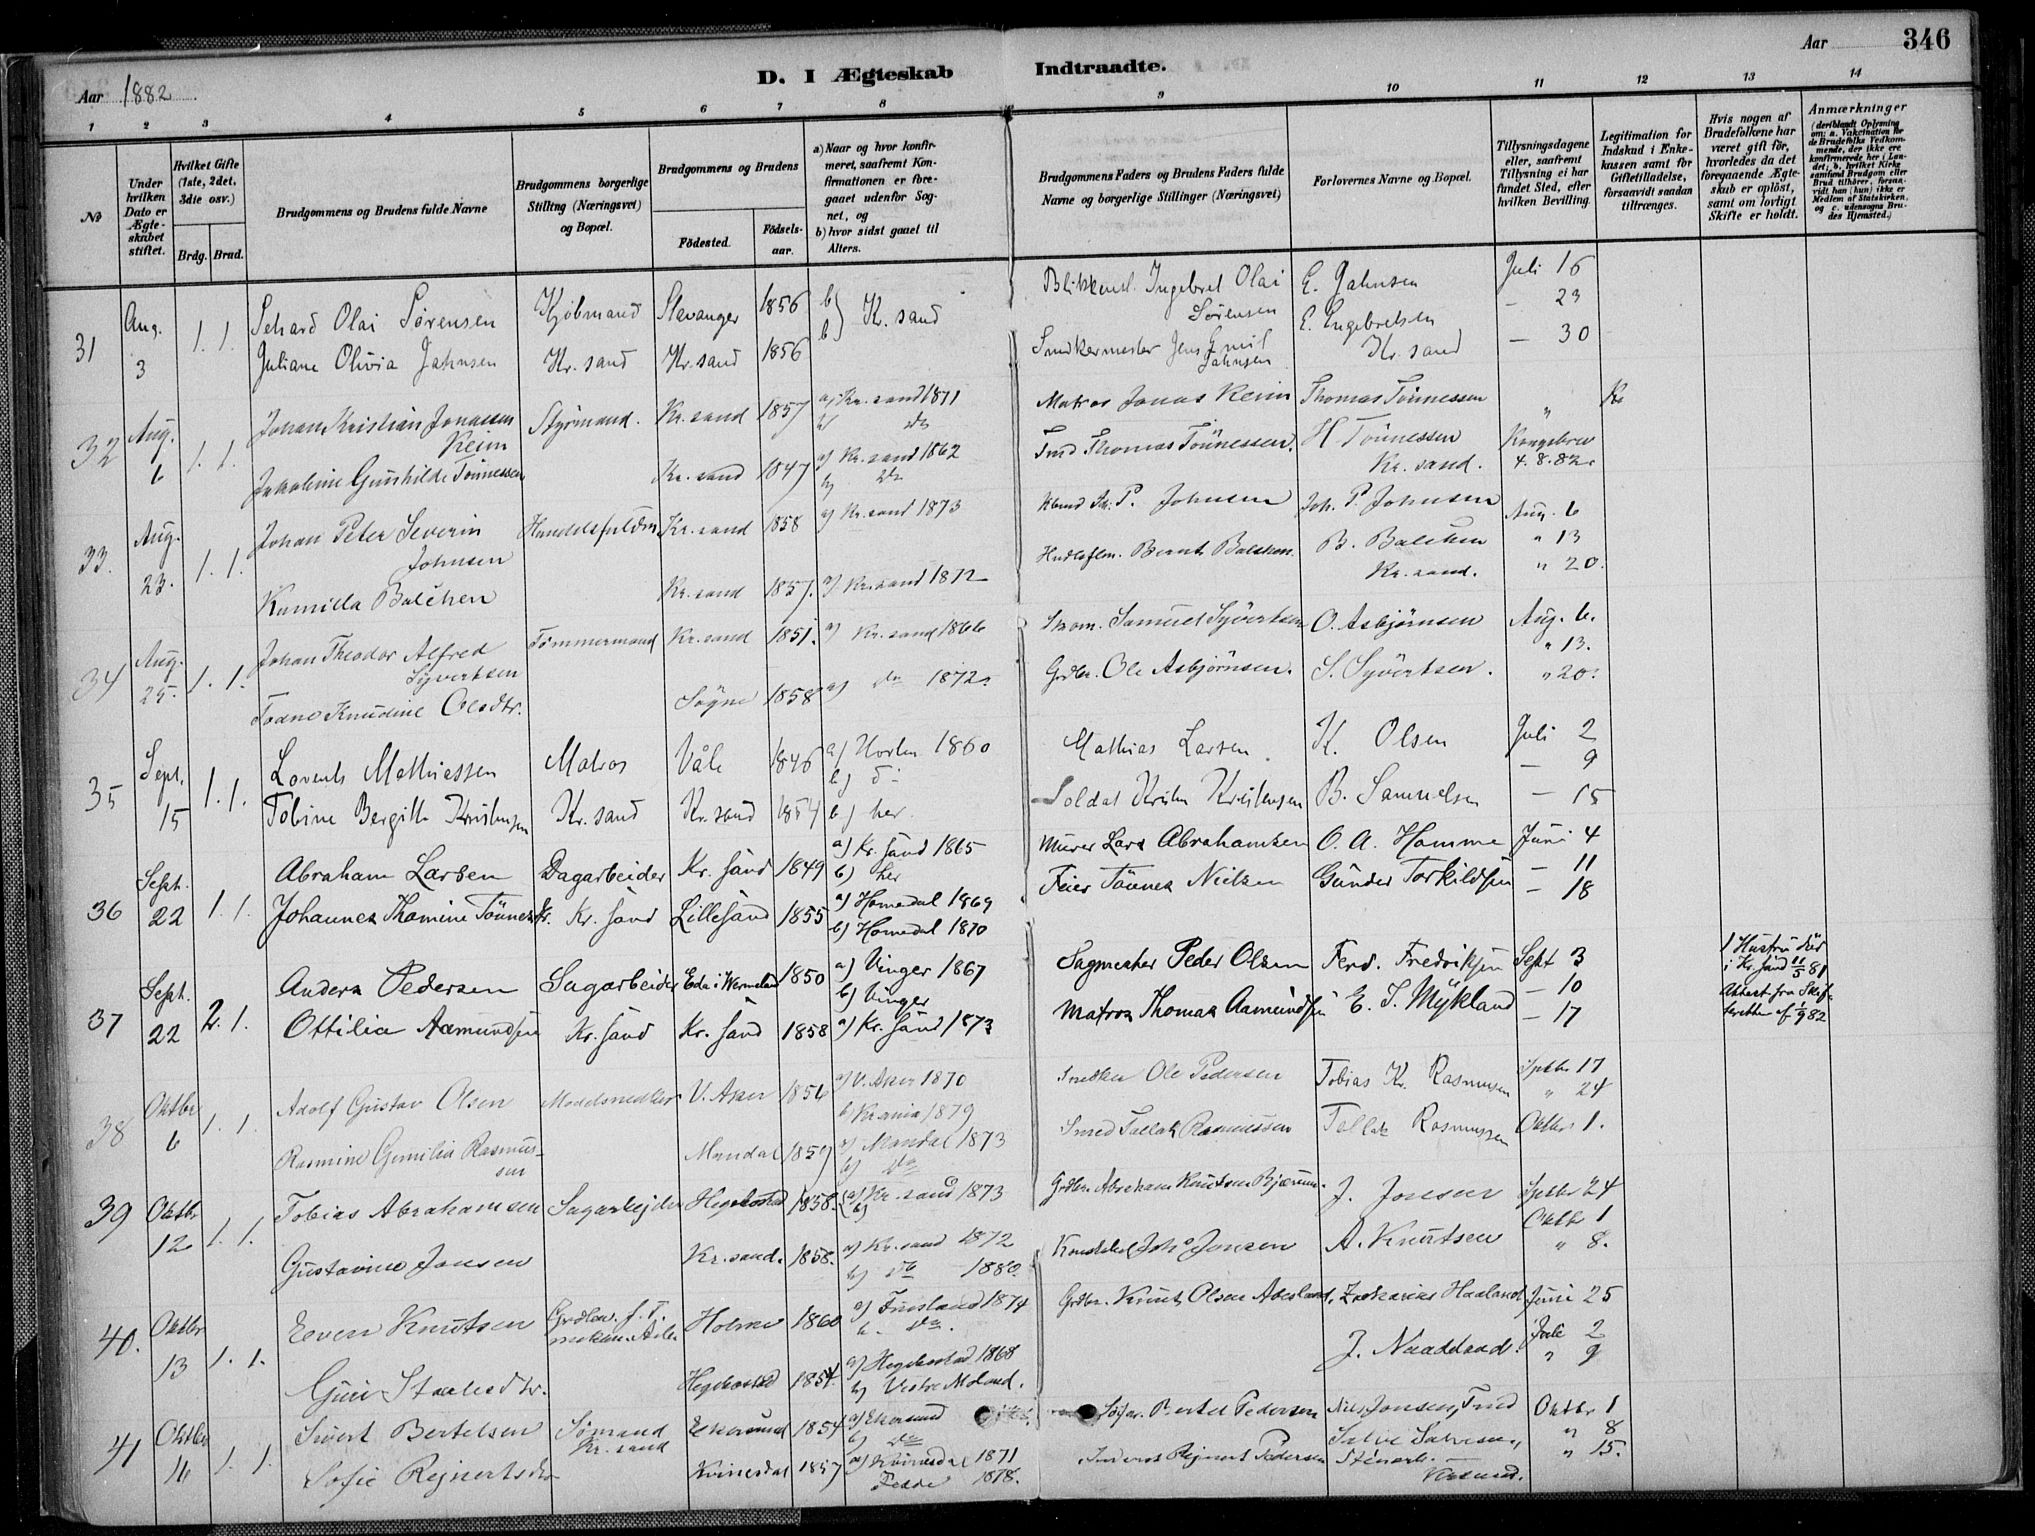 Aar 1882
D. I Ægteskab Indtraadte.
Aar 346
1 2 3 4 5 6 7 8 9 10 11 12 13 14
No
Under hvilken Dato er Ægteskabet stiftet.
Hvilket Gifte (1ste, 2det, 3die osv.)
Brdg. Brud.
Brudgommens og Brudens fulde Navne
Brudgommens borgerlige Stilling (Næringsvei) og Bopæl.
Brudgommens og Brudens
Födested. Födsels-aar.
a) Naar og hvor konfirmeret, saafremt Konfirmationen er foregaaet udenfor Sognet, og
b) hvor sidst gaaet til Alters.
Brudgommens Faders og Brudens Faders fulde Navne og borgerlige Stillinger (Næringsvei)
Forlovernes Navne og Bopæl.
Tillysningsdagene eller, saafremt Tillysning ei har fundet Sted, efter hvilken Bevilling.
Legitimation for Indskud i Enkekassen samt for Giftetilladelse, forsaavidt saadan tiltrænges.
Hvis nogen af Brudefolkene har været gift för, hvorledes da det foregaaende Ægteskab er oplöst, samt om lovligt Skifte er holdt.
Anmærkninger
(deriblandt Oplysning om: a. Vakcination for de Brudefolks Vedkommende, der ikke ere konfirmerede her i Landet, b. hvilket Kirkesamfund Brudgom eller Brud tilhörer, forsaavidt han (hun) ikke er Medlem af Statskirken, og c. udensogns Brudes Hjemsted.)
31 Aug. 3 1. 1.
Sehard Olai Sørensen Kjöbmand Stavanger 1856 b) Kr. sand Ingebret Olai Sørensen E. Jahnsen Juli 16
Juliane Olivia Jahnsen Kr. sand Kr. sand 1856 b) Snedkermester Jens Emil Jahnsen E. Engebretsen Kr. sand — 23 — 30
32 Aug. 6 1. 1.
Johan Kristian Jonassen Reim Styrmand. Kr. sand 1857 a) Kr. sand 1871 b) do Matros Jonas Reim Thomas Tönnessen "
Jakobine Gunhilde Tönnessen Kr. sand 1847 a) Kr. sand 1862 b) do Thomas Tönnessen. H Tönnessen Kr. sand. Kongebrev 4. 8. 82.
33. Aug. 23. 1. 1.
Johan Peter Severin Johnsen Handelsfuldm. Kr. sand 1858 a) Kr. sand 1873 P. Johnsen Joh. P. Johnsen Aug. 6
Kamilla Balchen Kr. sand 1857. a) Kr. sand 1872 Bernt Balchen. B. Balchen Kr. sand. " 13 " 20.
34 Aug. 25. 1. 1.
Johan Theodor Alfred Syvertsen Tömmermand Kr. sand 1851. a) Kr. sand 1866 Samuel Syvertsen O. Asbjørnsen Aug. 6.
Knudine Olsdtr. Søgne 1858 a) do 1872. Grdbr. Ole Asbjørnsen. S. Syvertsen. " 13. " 20.
35 Sept. 15 1. 1.
Lorents Mathiassen Matros Våle 1846 a) Horten 1860 b) do Mathias Larsen K. Olsen Juli 2
Tobine Bergitte Kristensen Kr. sand Kr. sand 1854 b) her. Soldat Kristen Kristensen B. Samuelsen — 9 — 15
36 Sept. 22 1. 1.
Abraham Larsen Dagarbeider Kr. sand 1849 a) Kr. sand 1865 b) her Murer Lars Abrahamsen O. A. Homme Juni 4
Johanne Thomine Tönnesdr. Kr. sand Lillesand 1855 a) Homedal 1869 b) Homedal 1870 Feier Tönnes Nielsen Gunder Torkildsen — 11 — 18
37 Sept. 22 2. 1.
Anders Pedersen Sagarbeider Eda i Wermeland 1850 a) Vinger 1867 b) Vinger Sagmester Peder Olsen Ferd. Fredriksen Sept 3 1 Hustru död i Kr. sand 11/5 81
Ottilia Aamundsen Kr. sand Kr. sand 1858 a) Kr. sand 1873 Matros Thomas Aamundsen E. S. Mykland — 10 — 17 Attest fra Skifteretten af 1/9 82
38 Oktbr 6 1. 1.
Adolf Gustav Olsen Modelsnedker V. Aker 1856 a) V. Aker 1870 b) Krania 1879 Snedker Ole Pedersen Tobias Kr. Rasmussen Septbr 17 " 24
Rasmine Gemilia Rasmussen Mandal 1859 a) Mandal 1873 b) do Smed Tallak Rasmussen Tallak Rasmussen Oktbr 1.
39 Oktbr 12 1. 1.
Tobias Abrahamsen Sagarbejder Hegebostad 1858. a) Kr. sand 1873 b) Grdbr. Abraham Knutsen J. Jonsen Septbr 24
Gustavine Jonsen Kr. sand. 1858. a) Kr. sand 1872 b) do 1880. Joh. Jonsen A. Knutsen Oktbr 1 " 8.
40. Oktbr 13 1. 1.
Even Knutsen Holme 1860 a) Finsland 1874 b. do. Grdbr. Knut Olsen Abesland. Zakarias Haaland Juni 25
Guri Staalesdtr. Hegebostad 1854. a) Hegebostad 1868 b) Vestre Moland. J. Naadland. Juli 2 " 9
41 Oktbr 16 1. 1.
Sivert Bertelsen Sömand Kr. sand Ekersund 1854 a) Ekersund b) do Bertel Pedersen Nils Jonsen, Oktbr 1
Sofie Rejnertsdtr Kvinesdal 1857 a) Kvinesdal 1871 Fedde 1878. Rejnert Pedersen " 8 " 15.